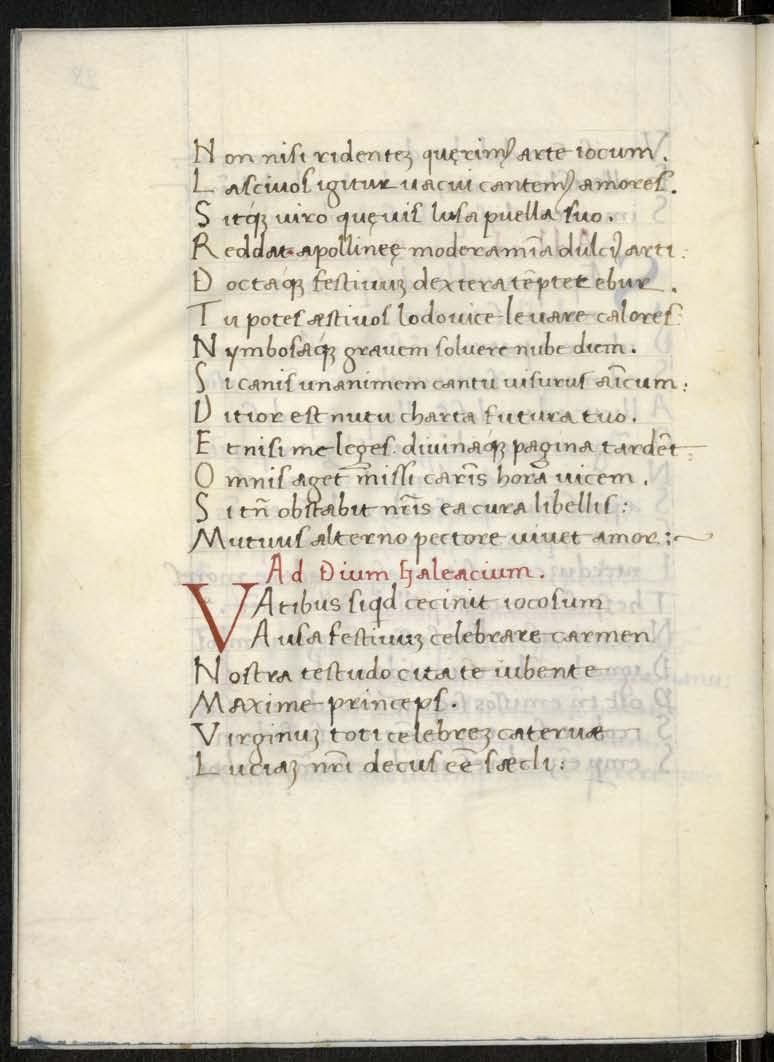 Non nisi ridenteꝫ quęrimꝰ arte iocum.
Lasciuos igitur uacui cantemꝰ amores.
Sitqꝫ uiro quęuis lusa puella suo.
Reddat apollineę moderamīa dulciꝰ arti:
Doctaqꝫ festiuuꝫ dextera tēptet ebur.
Tu potes æstiuos lodouice leuare calores:
Nymbosaqꝫ grauem soluere nube diem.
Si canis unanimem cantu uisurus aīcum:
Ditior est nutu charta futura tuo.
Et nisi me leges. diuinaqꝫ pagina tardēt:
Omnis aget missi carīs hora uicem.
Si tn̄ obstabit nr̄is ea cura libellis:
Mutuus alterno pectore uiuet amor:~
Ad Dium Galeacium.
VAtibus siqd cecinit iocosum
Ausa festiuuꝫ celebrare carmen
Nostra testudo cita te iubente
Maxime princeps.
Virginuꝫ toti celebreꝫ cateruæ
Luciaꝫ nr̄i decus cē sæcli: